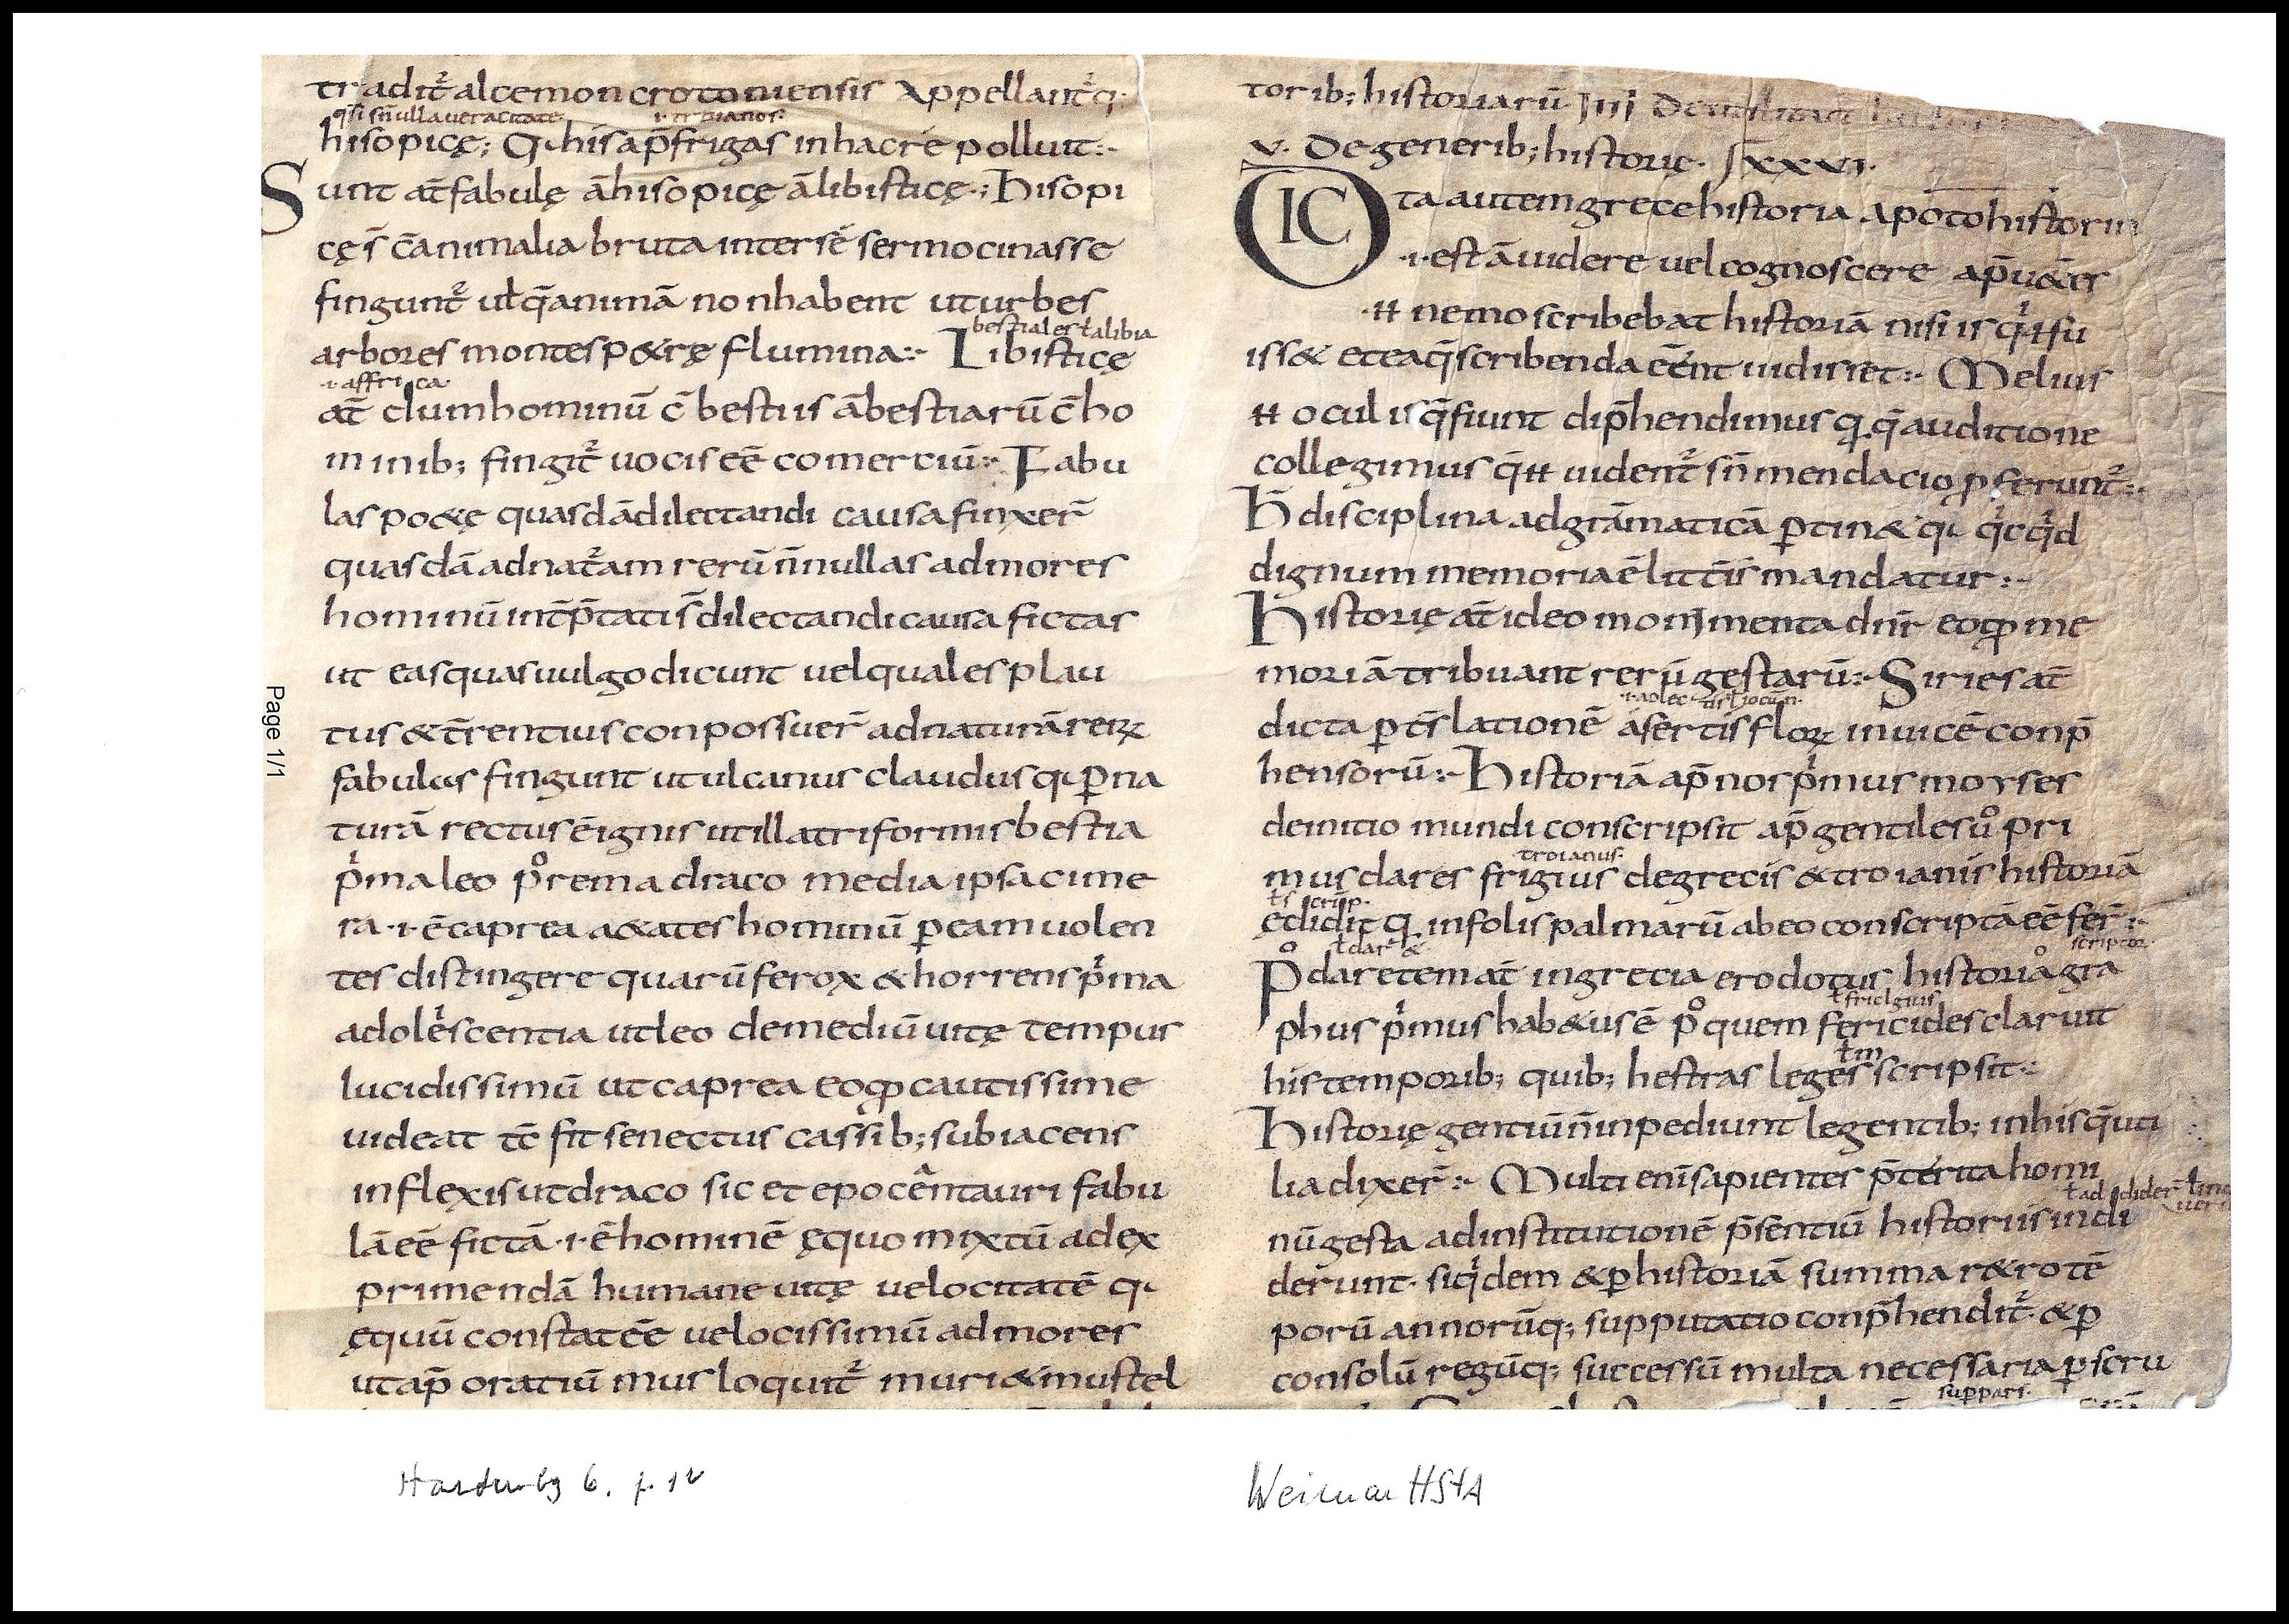 traditᷣ alcemon crotoniensis Appellantᷣ q
q̄si sn̄ ulla ueracitate· ·i· troianos·
hisopicę; Qi his ap̄ frigas in hac re polluit:·
Sunt at̄ fabulę a̅ hisopicę a̅ libisticę·; hisopi
cę s̄ c̄ animalia bruta inter se sermocinasse
fingunt᷑ ul q̄ animā non habent ut urbes
bestiales ł alibia
arbores montes p&rę flumina:· Libisticę
·i· affrica·
at̄ dum hominū c̄ bestiis a̅ bestiarū c̄ ho
minib; fingit᷑ uocis eē comerciū:· Fabu
las po&ę quasdā dilectandi causa finxer̄
quasdā ad nat᷑am rerū n̄nullas ad mores
hominū int̄p̄tati s̄ dilectandi causa fictas
ut eas quas uulgo dicunt uel quales plau
tus & t̄rentius conpossuer̄ ad naturā reꝝ
fabulas fingunt ut ulcanus claudus qi ꝑ na
turā rectus ē ignis ut illa triformis bestia
pͥma leo p᷒rema draco media ipsa cime
ra ·i· ē caprea a&ates hominū ꝑ eam uolen
tes distingere quarū ferox & horrens pͥma
adolescentia ut leo demediū uitę tempus
lucidissimū ut caprea eoꝙ cautissime
uideat tc̄ fit senectus cassib; subiacens
inflexis ut draco sic et epocentauri fabu
lā eē fictā ·i· ē hominē ęquo mixtū ad ex
primendā humane uitę uelocitatē qi
ęquū constat eē uelocissimū ad mores
ut ap̄ oratiū mus loquit᷑ muri & mustel
torib; historiarū IIII De
V· De generib; historię· XXVI·
DICta autem grece historia apo to historin
·i· est a̅ uidere uel cognoscere ap̄ u&er
·ħ nemo scribebat historiā nisi is qͥ ħ fu
iss& et ea q̄ scribenda eēnt uidiset:· Melius
ħ oculis q̄ fiunt dip̄hendimus q̄ q̄ auditione
collegimus q̄ ħ uident᷑ sn̄ mendacio ꝓferunt᷑:·
H̄ disciplina ad grāmaticā ꝑtin& qi qͥcqͥd
dignum memoria ē litt̄is mandatur:·
Historię at̄ ideo monimenta dn̄r eoꝙ me
moriā tribuant rerū gestarū:· Siries at̄
dicta ꝑ t̄slationē a sertis floꝝ inuicē conp̄
hensorū:· Historiā ap̄ nos pͥmus moyses
de initio mundi conscripsit ap̄ gentiles ū pri
troianus·
mus dares frigius de grecis & troianis historiā
ł scrip·
edidit q̄ in folis palmarū ab eo conscriptā eē fer̄:·
scriptor
Po daretem at̄ in grecia erodotus historia gra
ł fridgius
phus pͥmus hab&us ē po quem fericides claruit
ł m
his temporib; quib; hestras leges scripsit:·
Historię gentiū n̄ inpediunt legentib; in his q̄ uti
lia dixer̄:· Multi eni sapienter p̄terita homi
ł addider
nū gesta ad institutionē p̄sentiū historiis indi
derunt· siqͥdem & ꝑ historiā summa r&ro tē
porū annorūq; supputatio conp̄hendit᷑· & ꝑ
consolū regūq; successū multa necessaria ꝑscru
suppars·
Page 1/1
Weimar HStA